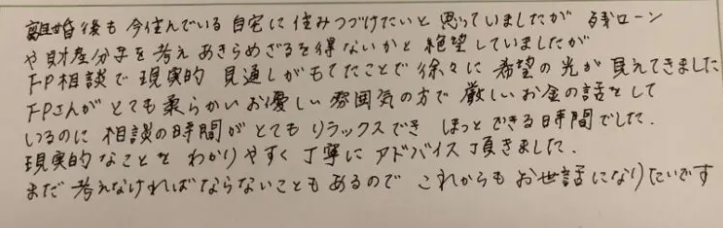 離婚後も今住んでいる自宅に住みつづけたいと思っていましたが 残ローン
や財産分与を考え あきらめざるを得ないかと絶望していましたが
FP相談で現実的 見通しがもてたことで徐々に希望の光が見えてきました
FPさんがとても柔らかいお優しい雰囲気の方で厳しいお金の話をして
いるのに相談の時間がとてもリラックスでき ほっとできる時間でした.
現実的なことをわかりやすく丁寧にアドバイス頂きました.
まだ考えなければならないこともあるので これからもお世話になりたいです